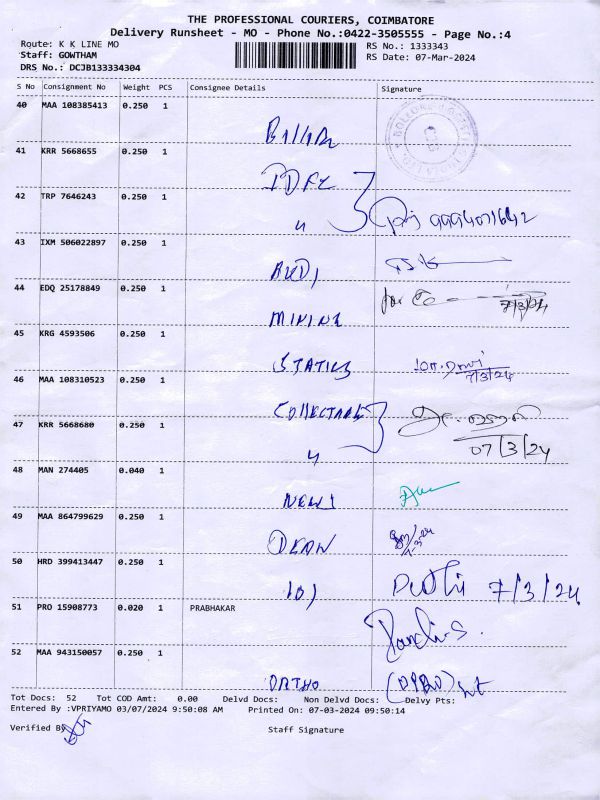 THE PROFESSIONAL COURIERS, COIMBATORE
Delivery Runsheet - MO - Phone No.:0422-3505555 - Page No.:4
Route: K K LINE MO
RS No.: 1333343
Staff: GOWTHAM
RS Date: 07-Mar-2024
DRS No.: DCJB133334304
S No Consignment No Weight PCS Consignee Details Signature
40 MAA 108385413 0.250 1
41 KRR 5668655 0.250 1
42 TRP 7646243 0.250 1
43 IXM 506022897 0.250 1
AUDI
44 EDQ 25178849 0.250 1
7/3/24
MINING
45 KRG 4593506 0.250 1
STATICS
7/3/24
46 MAA 108310523 0.250 1
47 KRR 5668680 0.250 1
07/3/24
48 MAN 274405 0.040 1
NEWS
49 MAA 864799629 0.250 1
DEAN
50 HRD 399413447 0.250 1
7/3/24
51 PRO 15908773 0.020 1 PRABHAKAR
52 MAA 943150057 0.250 1
ORTHO
Tot Docs: 52 Tot COD Amt: 0.00 Delvd Docs: Non Delvd Docs: Delvy Pts:
Entered By :VPRIYAMO 03/07/2024 9:50:08 AM Printed On: 07-03-2024 09:50:14
Verified By
Staff Signature